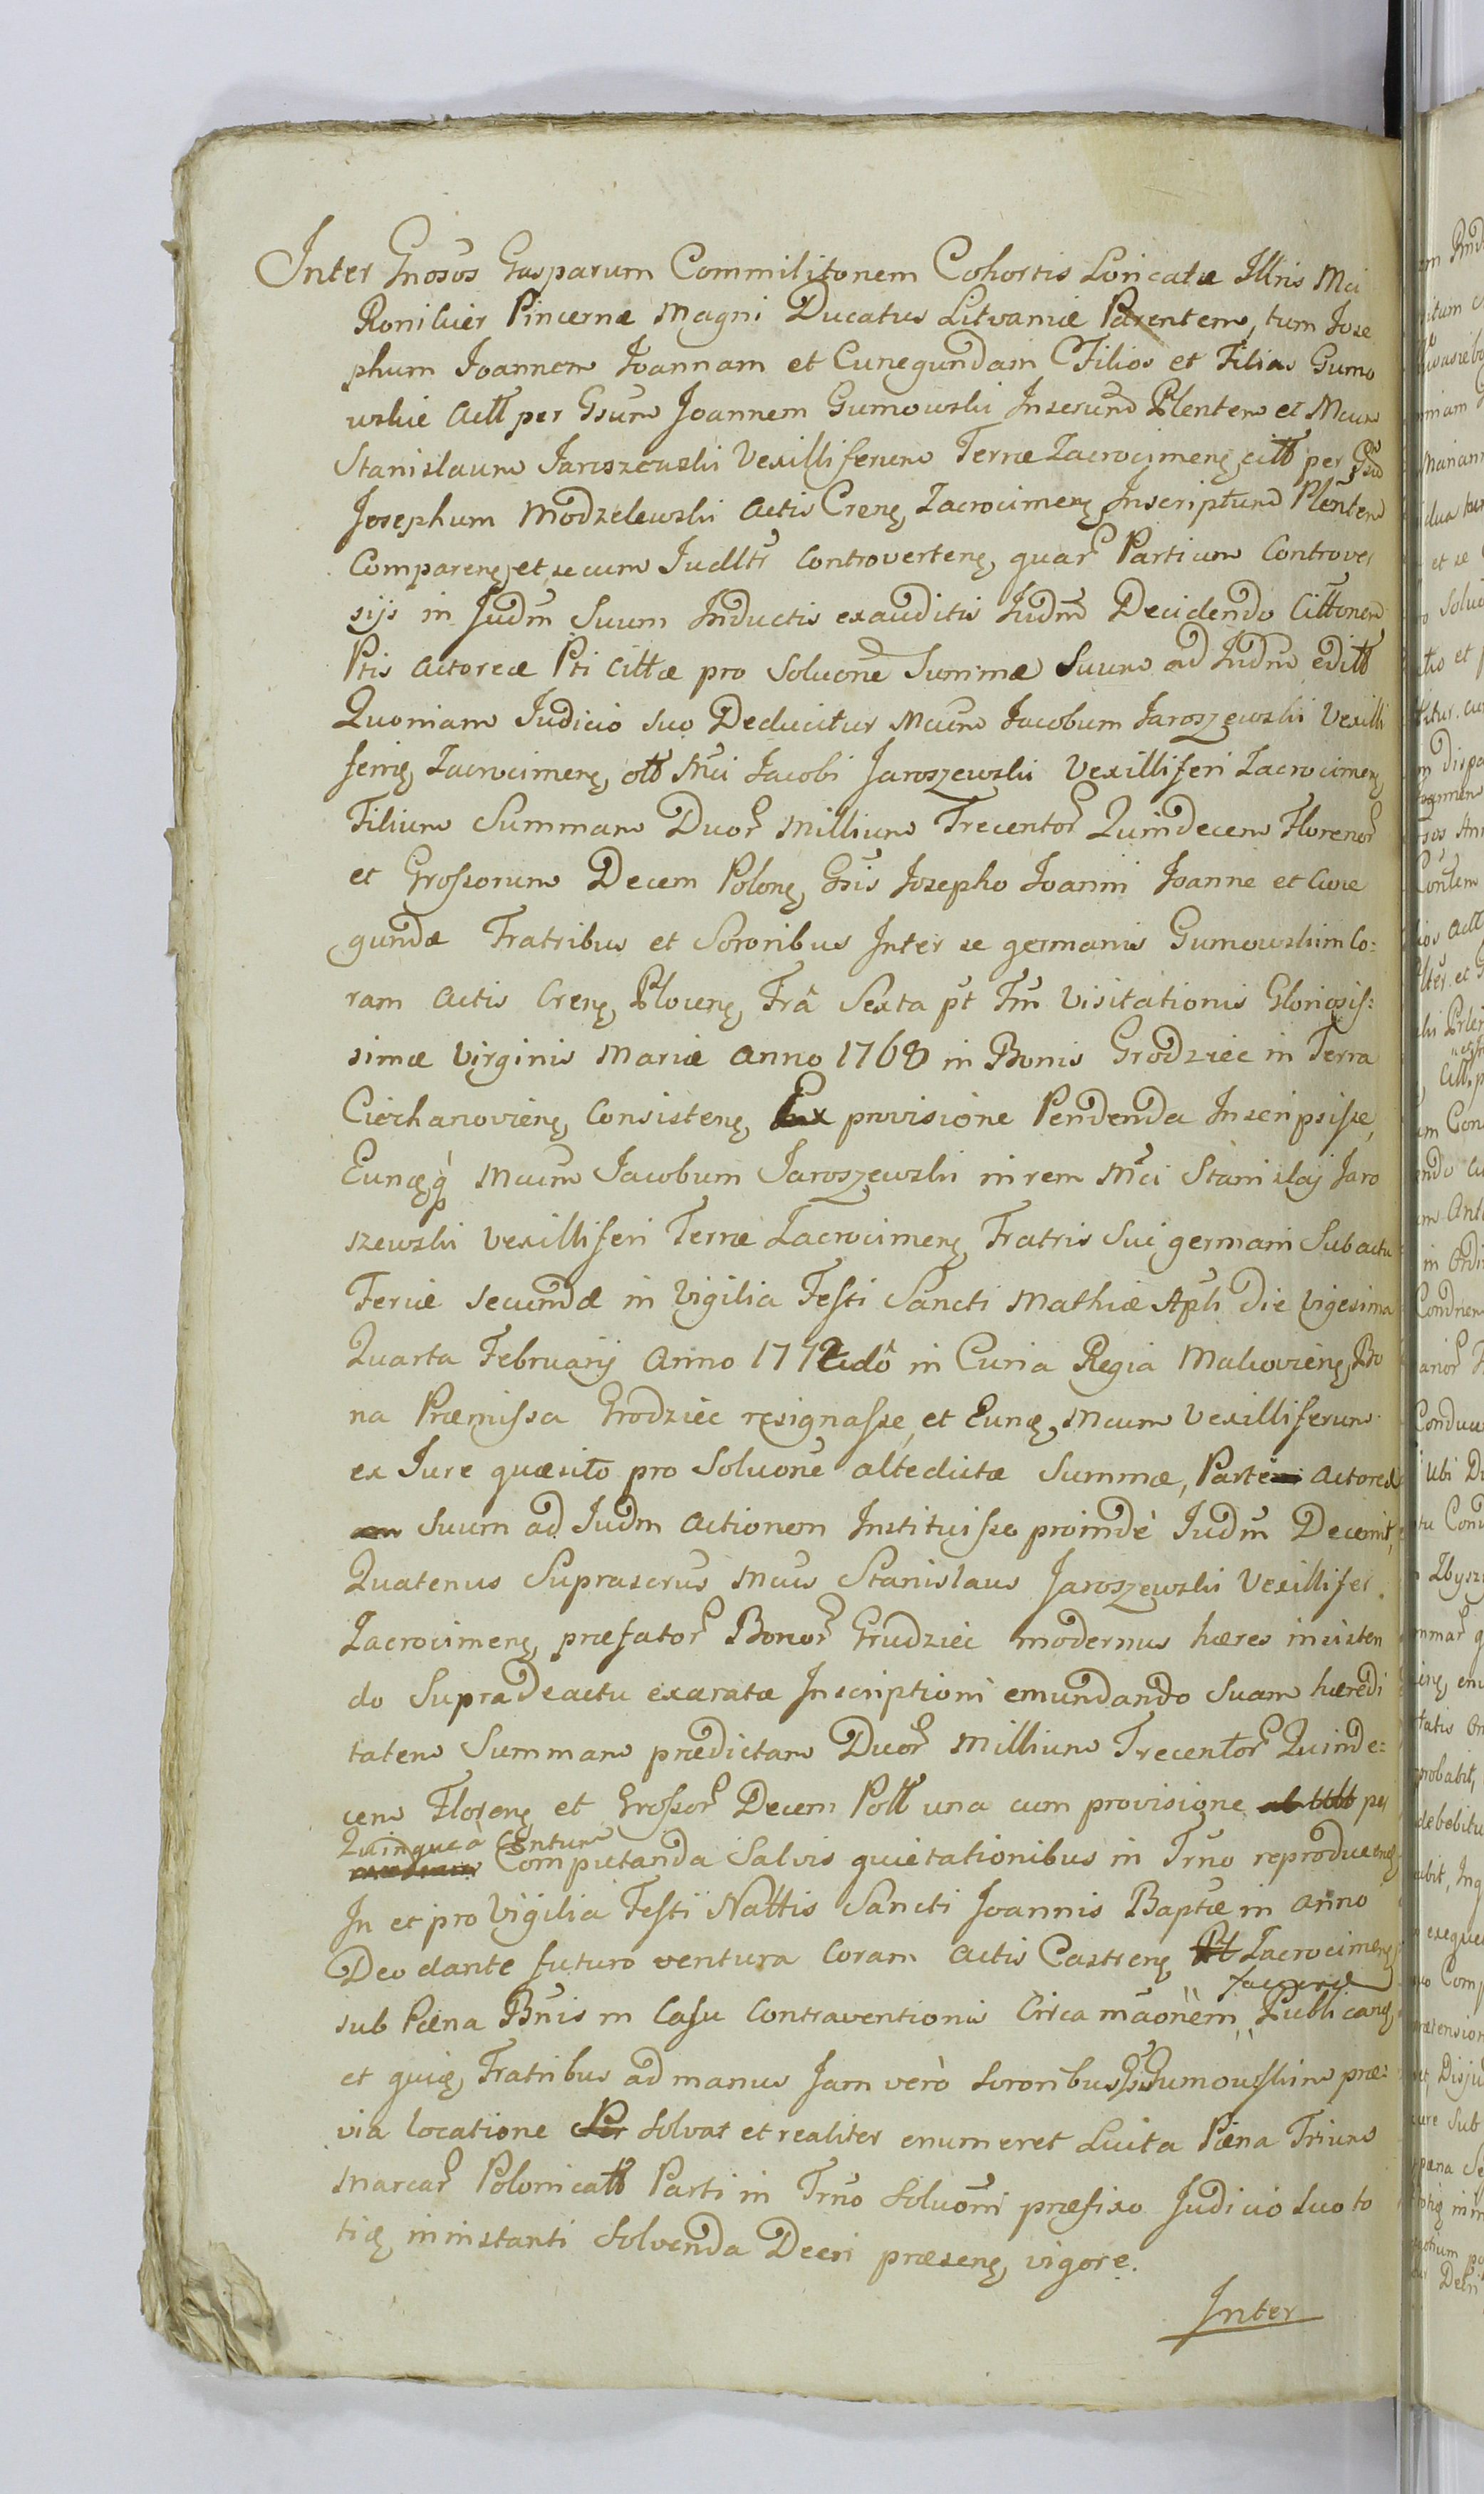 Inter Gnosos Gasparum Commilitonem Cohortis Loricatæ Illris Mci
Roniker Pincernæ Magni Ducatus Litvaniæ Parentem, tum Jose
phum Joannem Joannam et Cunegundam Filios et Filias Gumo
wskie Actt per Gsum Joannem Gumowski Inserum Plentem et Mcum
Stanislaum Jaroszewski Vexilliferum Terræ Zacrocimeng citt per Gsu
Josephum Modzelewski Actis Creng Zacrocimeng Inscriptum Plentem
Compareng et secum Judltr Controverteng, quar Partium Controver
sijs in Judm Suum Inductis exauditis Judm Decidendo Cittonem
Ptis Actoreæ Pti Cittæ pro Soluone Summæ Suum ad Judm editt
Quoniam Judicio Suo Deducitur Mcum Jacobum Jaroszewski Vexilli
ferng Zacrocimeng, ott Mci Jacobi Jaroszewski Vexilliferi Zacrocimeng
Filium Summam Duor Millium Trecentor Quindecem Florenor
et Grossorum Decem Polong, Gsis Josepho Joanni Joannæ et Cune
gundæ Fratribus et Sororibus Inter se germanis Gumowskim Co:
ram Actis Creng Ploceng, Fra Sexta pt Fm Visitationis Gloriosis:
simæ Virginis Mariæ Anno 1768 in Bonis Grodziec in Terra
Ciechanovieng Consisteng, Ex provisione Pendenda Inscripsisse,
Eunqg Mcum Jacobum Jaroszewski in rem Mci Stanislaj Jaro
szewski Vexilliferi Terræ Zacrocimeng Fratris Sui germani Sub actu
Feriæ Secundæ in Vigilia Festi Sancti Mathiæ Apli die Vigesima
Quarta Februarij Anno 1772do in Curia Regia Makovieng, Bo
na Præmissa Grodziec resignasse, et Eunq, Mcum Vexilliferum
ex Jure quæsito pro Soluone altedictæ Summæ, Parte Actorea
Suum ad Judm Actionem Instituisse proindè Judm Decernit,
Quatenus Suprascrus Mcus Stanislaus Jaroszewski Vexillifer
Zacrocimeng, præfator Bonor Grudziec modernus hæres insisten
do Supra De actu exaratæ Inscriptioni emundando Suam hæredi
tatem Summam prædictam Duor Millium Trecentor Quinde=
cem Floreng et Grossor Decem Poltt una cum provisione per
Quinque à Centum
Computanda Salvis quietationibus in Trno reproduceng
In et pro Vigilia Festi Nattis Sancti Joannis Baptæ in Anno
Deo dante futuro ventura Coram Actis Castreng Zacrocimeng
sub Pæna Bnis in Casu Contraventionis Circa maonem Publicang,
et quiq, Fratribus ad manus Jam verò Sororibus Gsis Gumowskim præ=
via locatione Solvat et realiter enumeret Luita Pæna Trium
Marcar Polonicatt Parti in Trno Soluoni præfixo Judicio Suo to
tiq in instanti Solvenda Decri præseng vigore.
Inter